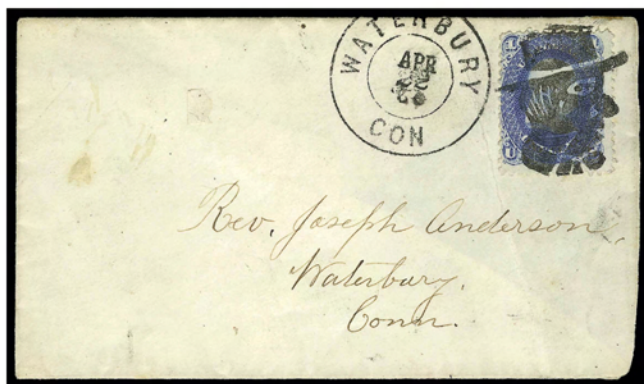 WATERBURY
APR
CON
Rev. Joseph Anderson,
Waterbury.
Conn.